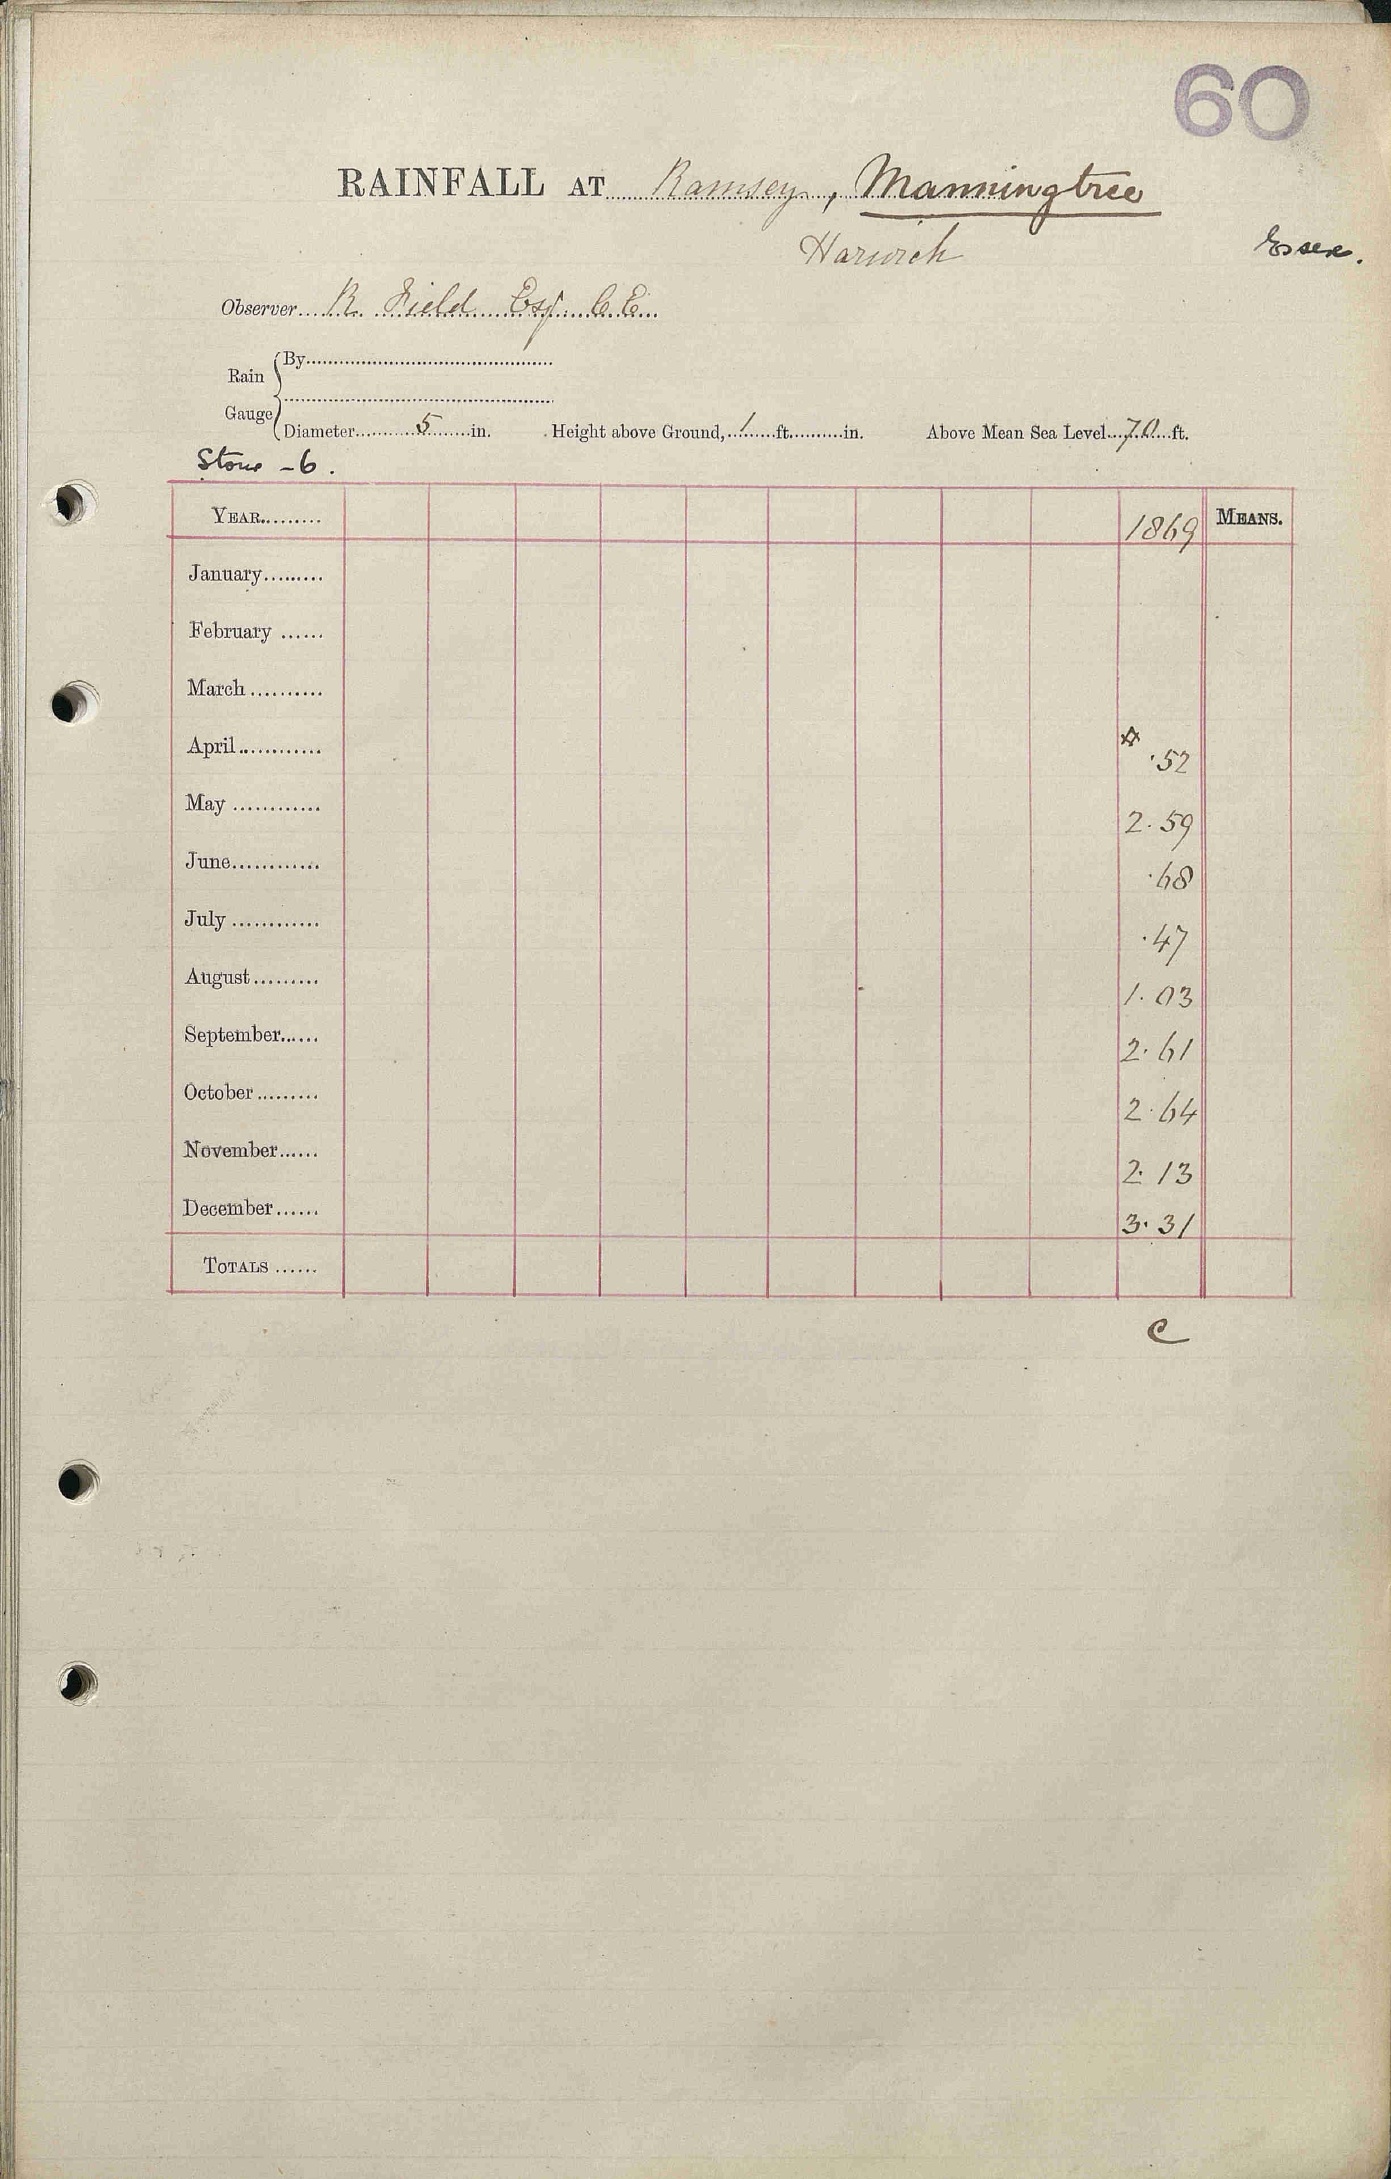 60
RAINFALL AT Ramsey, Manningtree
Harwich Essex.
Observer R. Field Esq C.E.
Rain Gauge By
Diameter 5 in. Height above Ground, 1 ft. in. Above Mean Sea Level 70 ft.
Stone - 6.
YEAR 1869 MEANS.
January
February
March
April ☆ .52
May 2.59
June .68
July .47
August 1.03
September 2.61
October 2.64
November 2.13
December 3.31
TOTALS
C